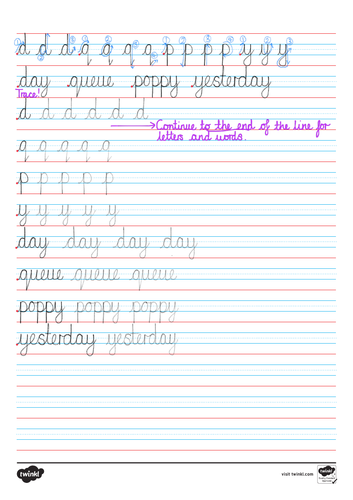 d d d q q q q p p p p y y y
day queue poppy yesterday
Trace!
d d d d d d
Continue to the end of the line for
letters and words.
q q q q q
p p p p p
y y y y y
day day day day
queue queue queue
poppy poppy poppy
yesterday yesterday
twinkl
visit twinkl.com
twinkl